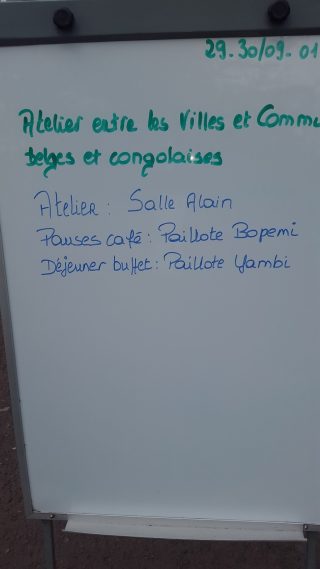 29.30/09.01
Atelier entre les Villes et Commu
belges et congolaises
Atelier : Salle Alain
Pauses café : Paillote Bopemi
Déjeuner buffet : Paillote Yambi